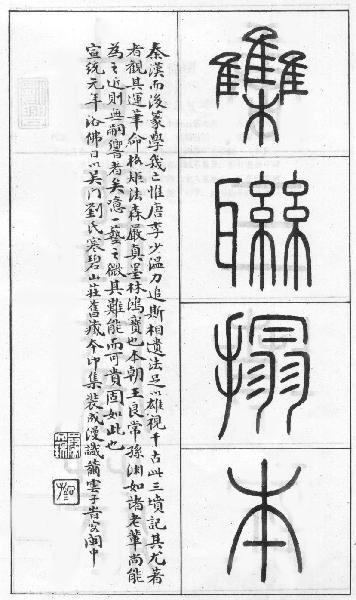 雧聯搨本
秦漢而後篆學幾亡惟唐李少溫力追斯相遺法足以雄視千古此三墳記其尤著
者觀其運筆命格矩法森嚴真墨林鴻寶也本朝王良常孫淵如諸老輩尚能
為之近則無嗣響者矣噫一藝之微其難能而可貴固如此也
宣統元年浴佛日以吳門劉氏寒碧山莊舊藏今印集裝成漫識雲子客閩中